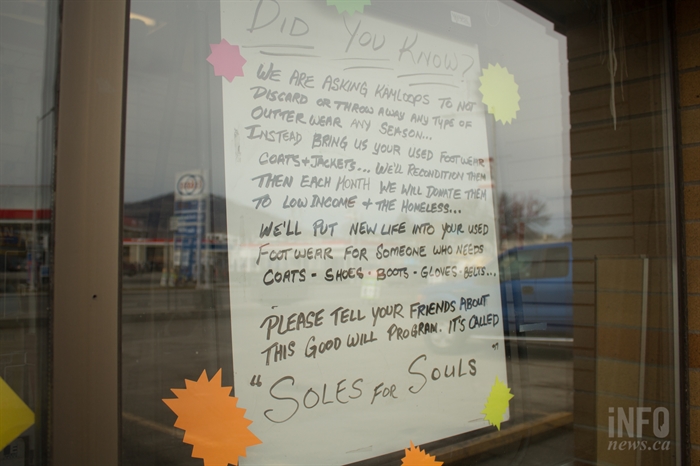 DID YOU KNOW?
WE ARE ASKING KAMLOOPS TO NOT
DISCARD OR THROW AWAY ANY TYPE OF
OUTTER WEAR ANY SEASON...
INSTEAD BRING US YOUR USED FOOTWEAR
COATS + JACKETS... WE'LL RECONDITION THEM
THEN EACH MONTH WE WILL DONATE THEM
TO LOW INCOME + THE HOMELESS...
WE'LL PUT NEW LIFE INTO YOUR USED
FOOTWEAR FOR SOMEONE WHO NEEDS
COATS - SHOES - BOOTS - GLOVES - BELTS...
PLEASE TELL YOUR FRIENDS ABOUT
THIS GOOD WILL PROGRAM. IT'S CALLED
"SOLES FOR SOULS"
iNFO
news.ca